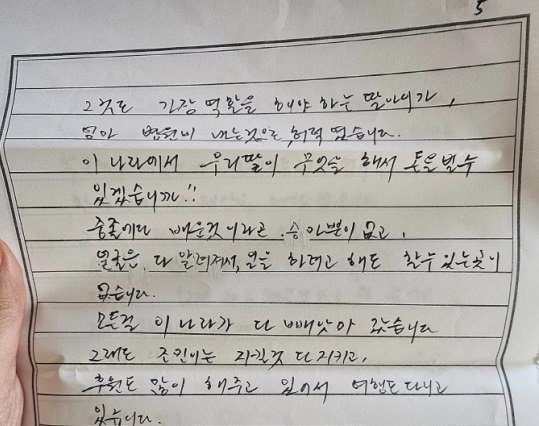 5
그것도 가장 역활을 해야 하는 딸아이가,
엄마 병원비 내는것으로, 허덕 였습니다.
이 나라에서 우리딸이 무엇을 해서 돈을 벌수
있겠습니까!!
중졸에다 배운것이라곤 승마뿐이 없고,
얼굴은 다 알려져서, 일을 하려고 해도 할수 있는곳이
없습니다.
모든걸 이 나라가 다 빼앗아 갔습니다
그래도 조민이는 지킬것 다 지키고,
후원도 많이 해주고 있어서 여행도 다니고
있습니다.